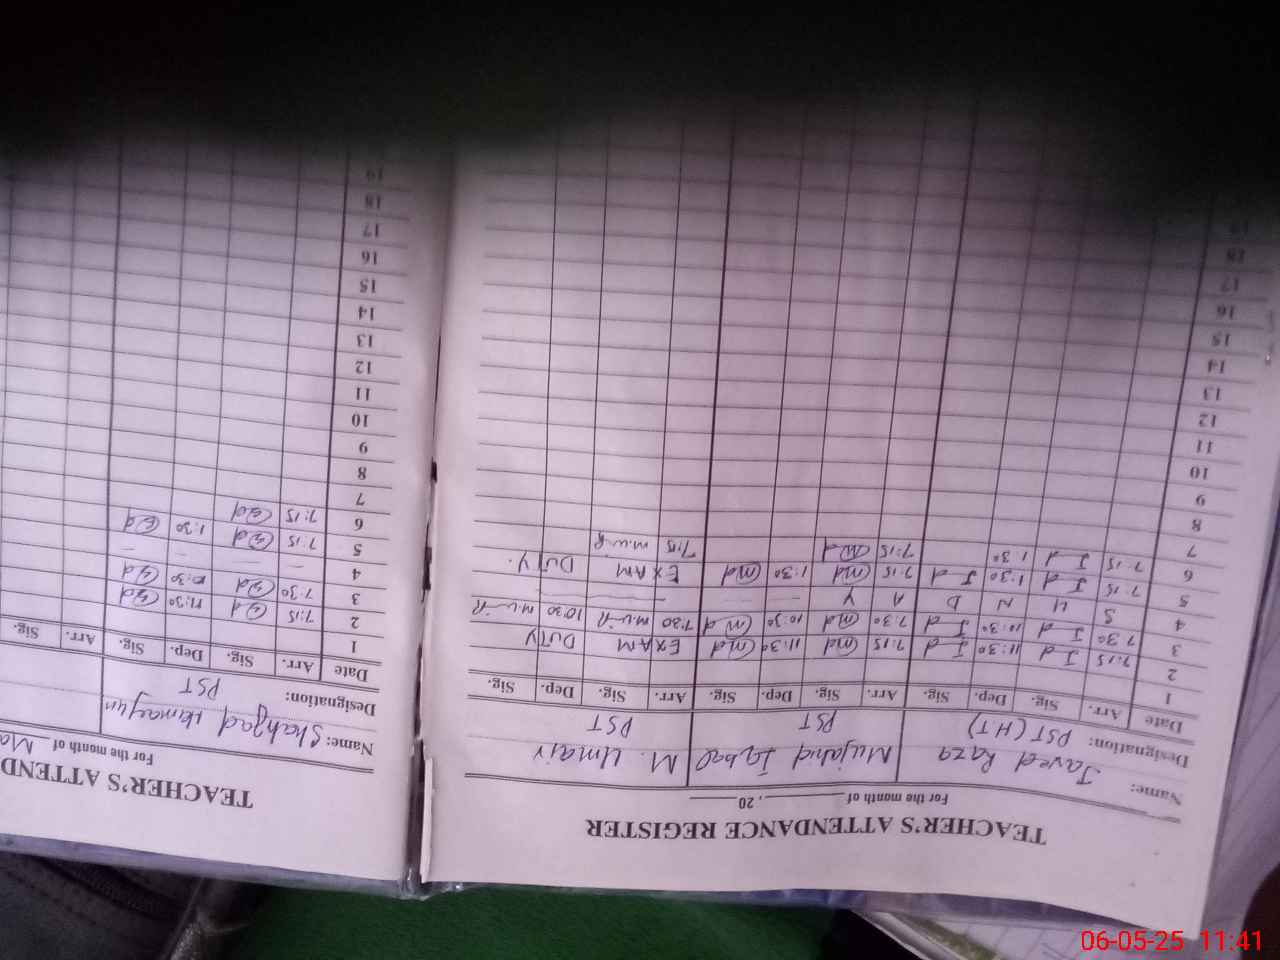 TEACHER'S ATTENDANCE REGISTER
For the month of , 20
Name: Javed Raza Mujahid Iqbal M. Umair
Designation: PST (HT) PST PST
Date Arr. Sig. Dep. Sig. Arr. Sig. Dep. Sig. Arr. Sig. Dep. Sig.
1
2 7:15 Jd 11:30 Jd 7:15 md 11:30 md EXAM DUTY
3 7:30 Jd 10:30 Jd 7:30 md 10:30 md 7:30 m.u-R 10:30 m.u-R
4 S U N D A Y
5 7:15 Jd 1:30 Jd 7:15 md 1:30 md EXAM DUTY.
6 7:15 Jd 1:30 7:15 md 7:15 m.u-R
7
8
9
10
11
12
13
14
15
16
17
18
19
TEACHER'S ATTEND
For the month of Ma
Name: Shahzad Humayun
Designation: PST
Date Arr. Sig. Dep. Sig. Arr. Sig.
1
2 7:15 Sd 11:30 Sd
3 7:30 Sd 10:30 Sd
4
5 7:15 Sd 1:30 Sd
6 7:15 Sd
7
8
9
10
11
12
13
14
15
16
17
18
19
06-05-25 11:41